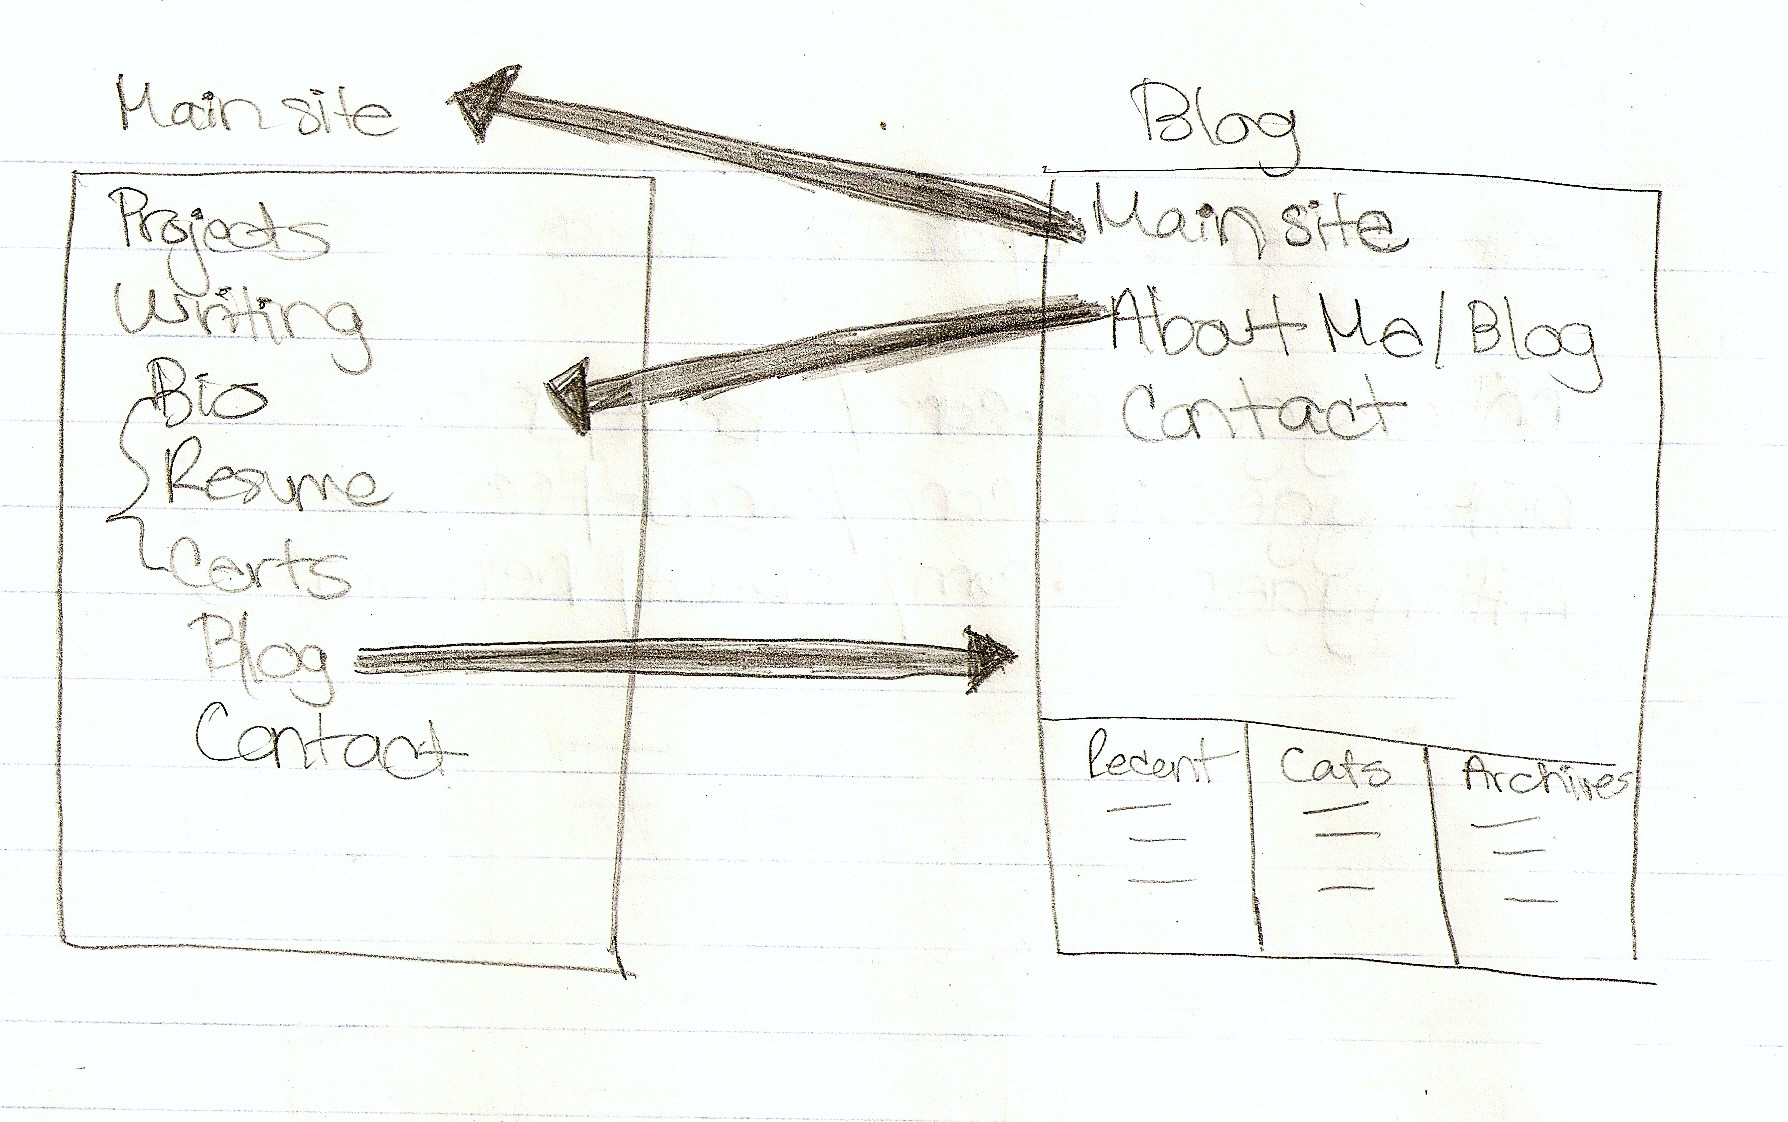 Main site
Projects
Writing
Bio
Resume
Certs
Blog
Contact
Blog
Main site
About Me/Blog
Contact
Recent
Cats
Archives